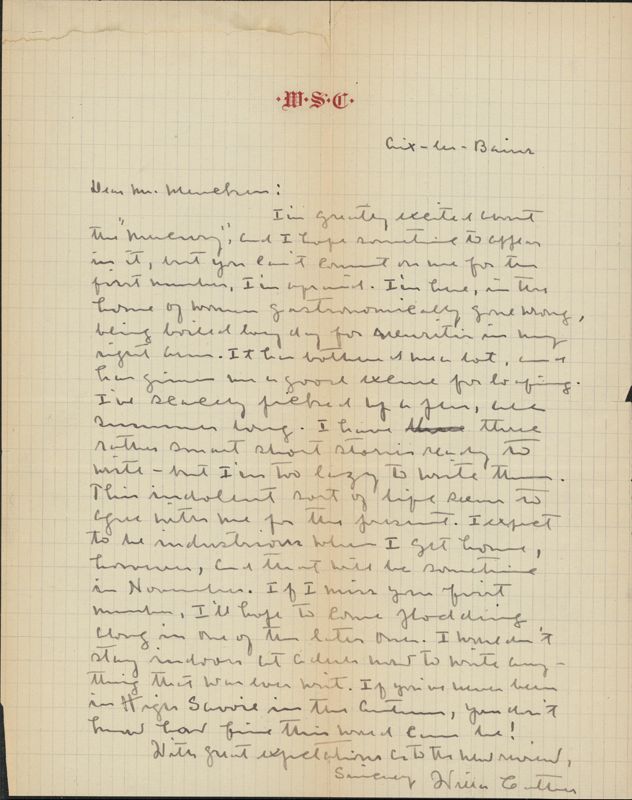 ·W·S·C·
Aix-les-Bains
Dear Mr. Mencken:
I'm greatly excited about
the "Mercury", and I hope something to appear
in it, but you can't count on me for the
first number, I'm afraid. I'm here, in this
home of women gastronomically gone wrong,
being boiled every day for neuritis in my
right arm. It has bothered me a lot, and
has given me a good excuse for loafing.
I've scarcely picked up a pen, all
summer long. I have three
rather smart short stories ready to
write - but I'm too lazy to write them.
This indolent sort of life seems to
agree with me for the present. I expect
to be industrious when I get home,
however, and that will be something
in November. If I miss your first
number, I'll hope to come plodding
along in one of the later ones. I wouldn't
stay indoors at a desk now to write any-
thing that was ever writ. If you've never been
in High Savoie in the Autumn, you don't
know how fine this world can be!
With great expectations as to the new review,
Sincerely Willa Cather